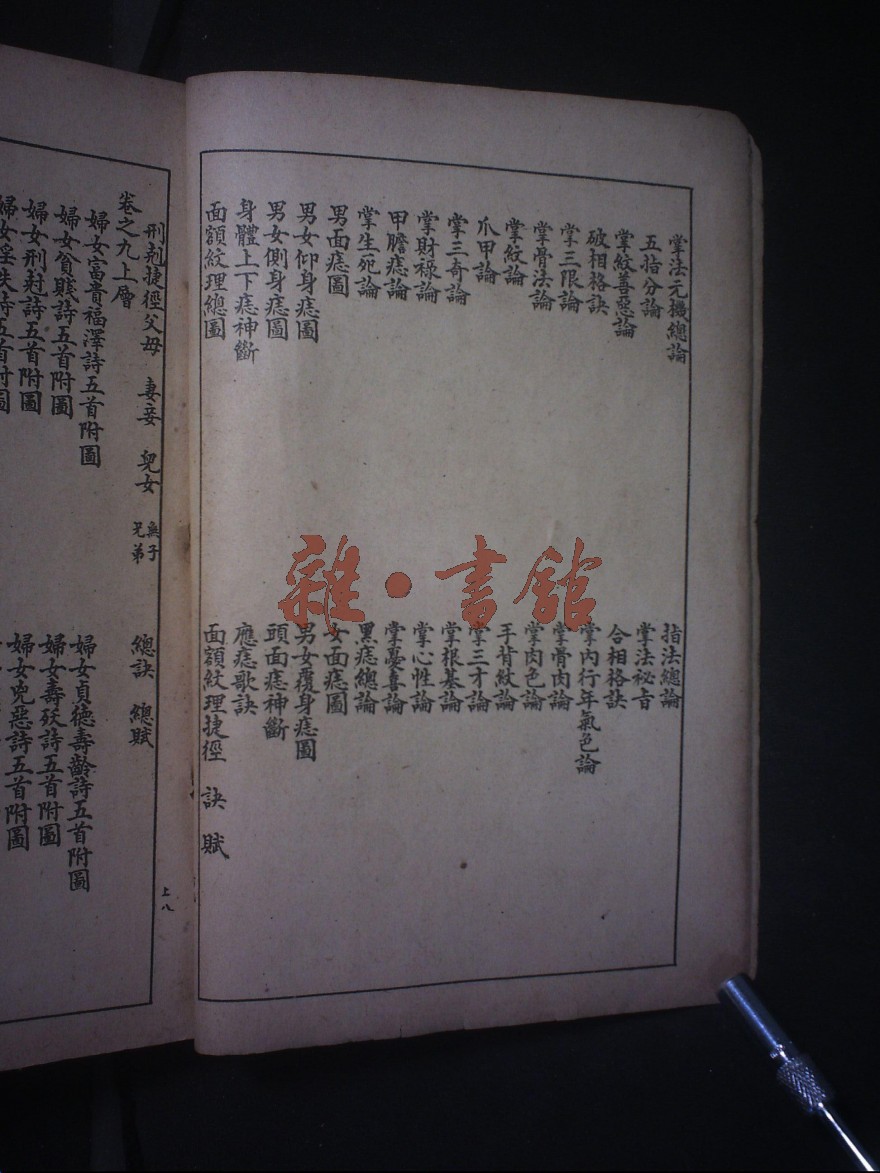 掌法元機總論　指法總論
五指分論　掌法祕旨
掌紋善惡論　合相格訣
破相格訣　掌內行年氣色論
掌三限論　掌骨肉論
掌骨法論　掌肉色論
掌紋論　手背紋論
爪甲論　掌三才論
掌三奇論　掌根基論
掌財祿論　掌心性論
甲膽痣論　掌憂喜論
掌生死論　黑痣總論
男面痣圖　女面痣圖
男女仰身痣圖　男女覆身痣圖
男女側身痣圖　頭面痣神斷
身體上下痣神斷　應痣歌訣
面額紋理總圖　面額紋理捷徑　訣　賦
刑剋捷徑父母　妻妾　兒女　無子　兄弟　總訣　總賦
卷之九上層
婦女富貴福澤詩五首附圖　婦女貞德壽齡詩五首附圖
婦女貧賤詩五首附圖　婦女壽殀詩五首附圖
婦女刑剋詩五首附圖　婦女兇惡詩五首附圖
婦女淫泆詩五首附圖
上八
雜・書館